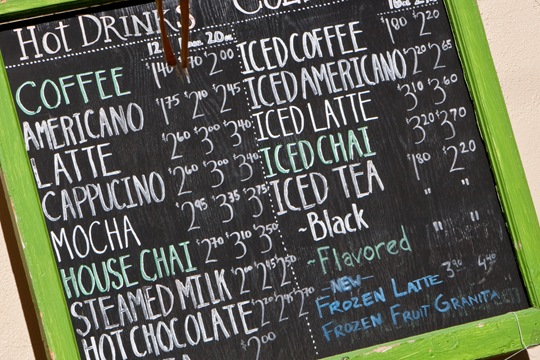 Hot Drinks
COFFEE $1.40 $1.70 $2.00
AMERICANO $1.75 $2.10 $2.45
LATTE $2.60 $3.00 $3.40
CAPPUCINO $2.60 $3.00 $3.40
MOCHA $2.95 $3.35 $3.75
HOUSE CHAI $2.70 $3.10 $3.50
STEAMED MILK
HOT CHOCOLATE
$2.00
ICED COFFEE $1.80 $2.20
ICED AMERICANO $2.20 $2.65
ICED LATTE $3.10 $3.60
ICED CHAI $3.20 $3.70
ICED TEA $1.80 $2.20
~Black " "
~Flavored " "
~NEW~
FROZEN LATTE
FROZEN FRUIT GRANITA